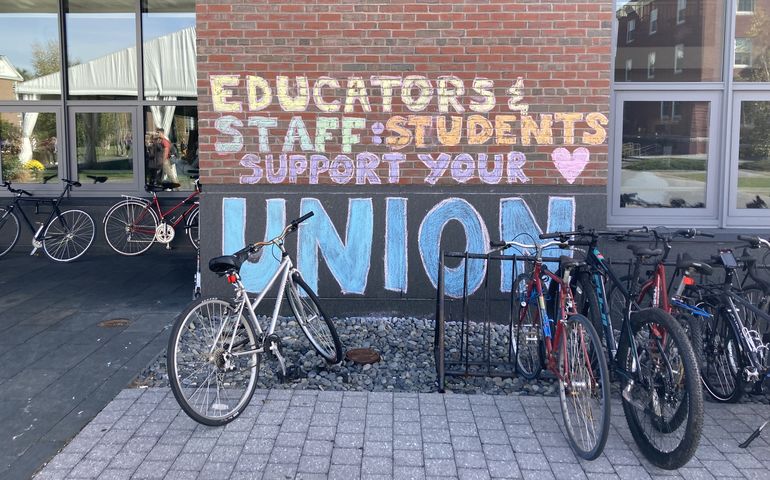 EDUCATORS &
STAFF : STUDENTS
SUPPORT YOUR
UNION